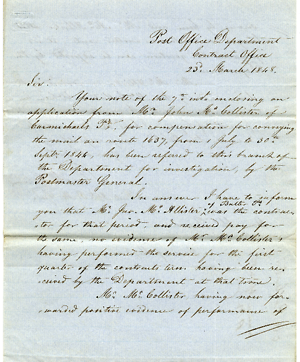 Post Office Department
Contract Office
23d March 1848.
Sir.
Your note of the 7th inst. enclosing an
application from Mr. John McCollister of
Carmichaels Pa. for compensation for conveying
the mail on route 1637, from 1 July to 30th
Sept. 1844, has been referred to this branch of
the Department for investigation, by the
Postmaster General.
In answer I have to inform
you that Mr. Jno. McAllister, of Butler Pa. was the contrac-
tor for that period, and received pay for
the same, no evidence of Mr. McCollister's
having performed the service for the first
quarter of the contract term having been re-
ceived by the Department at that time.
Mr. McCollister having now for-
warded positive evidence of performance of